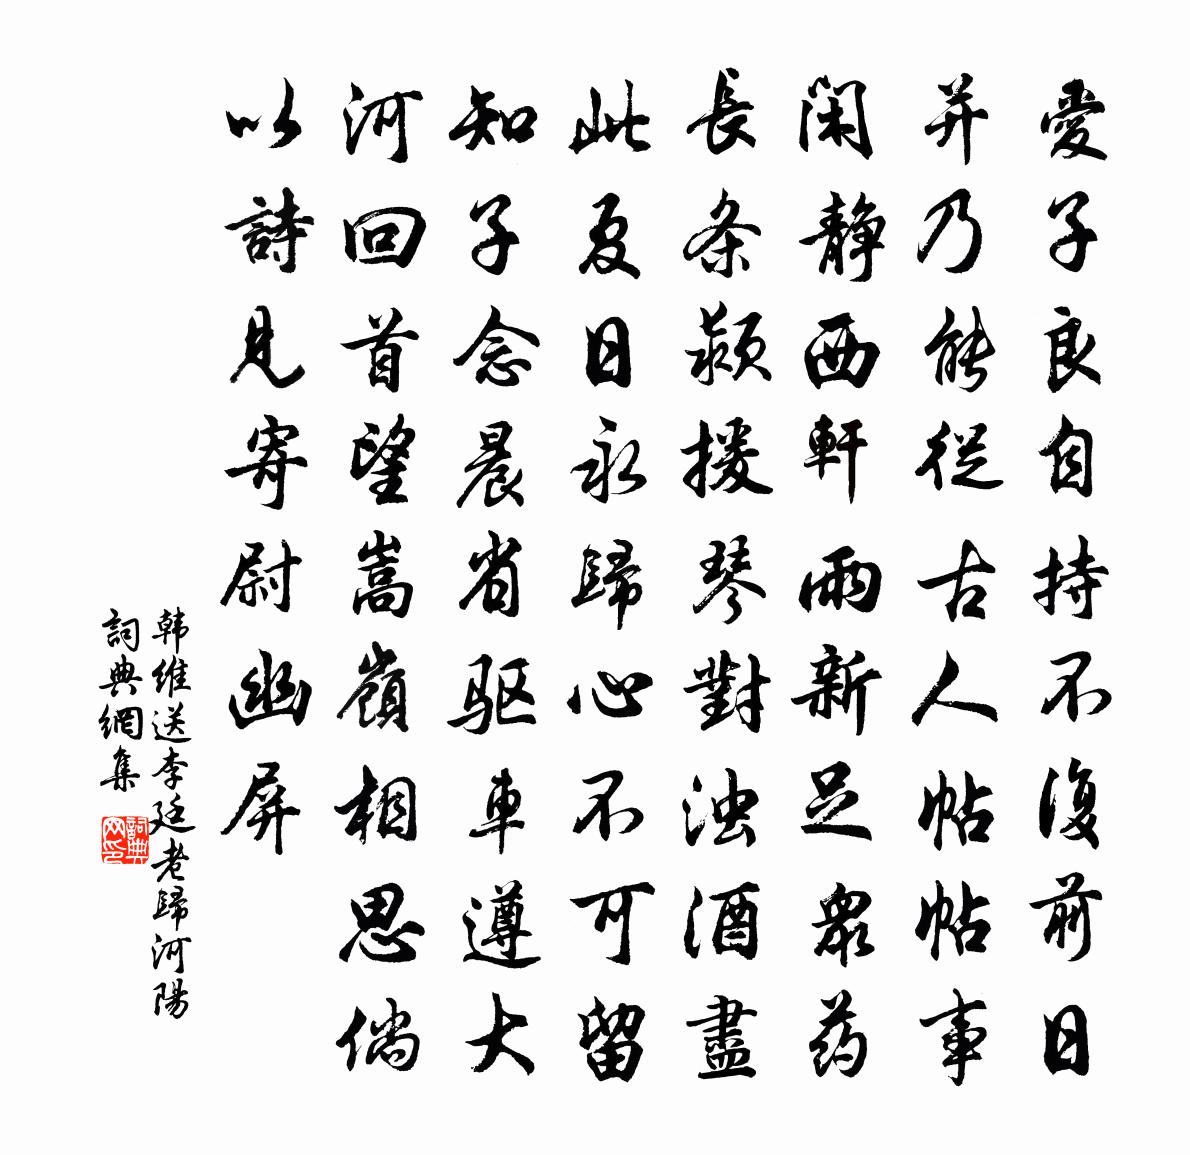 愛子良自持不復前日
并乃能從古人帖帖事
閑静西軒雨新足衆药
長条潁援琴對浊酒盡
此夏日永歸心不可留
知子念晨省驱車遵大
河回首望嵩嶺相思倘
以詩見寄尉幽屏
韩維送李廷老歸河陽
詞典網集
詞典网印